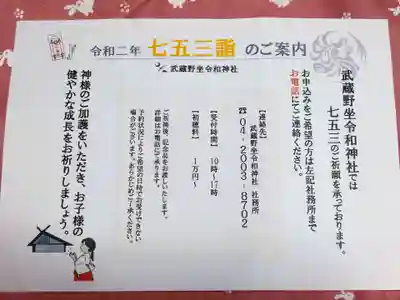 令和二年 七五三詣 のご案内
武蔵野坐令和神社
武蔵野坐令和神社では
七五三のご祈願を承っております。
お申込みをご希望の方は左記社務所まで
お電話にてご連絡ください。
【連絡先】
武蔵野坐令和神社 社務所
☎04-2003-8702
【受付時間】 10時～17時
【初穂料】 1万円～
ご祈禱後、記念品をお渡しいたします。
詳細はお電話にて承ります。
予約状況によりご希望の日時でお受けできない
場合がございます。あらかじめご了承ください。
神様のご加護をいただき、お子様の
健やかな成長をお祈りしましょう。